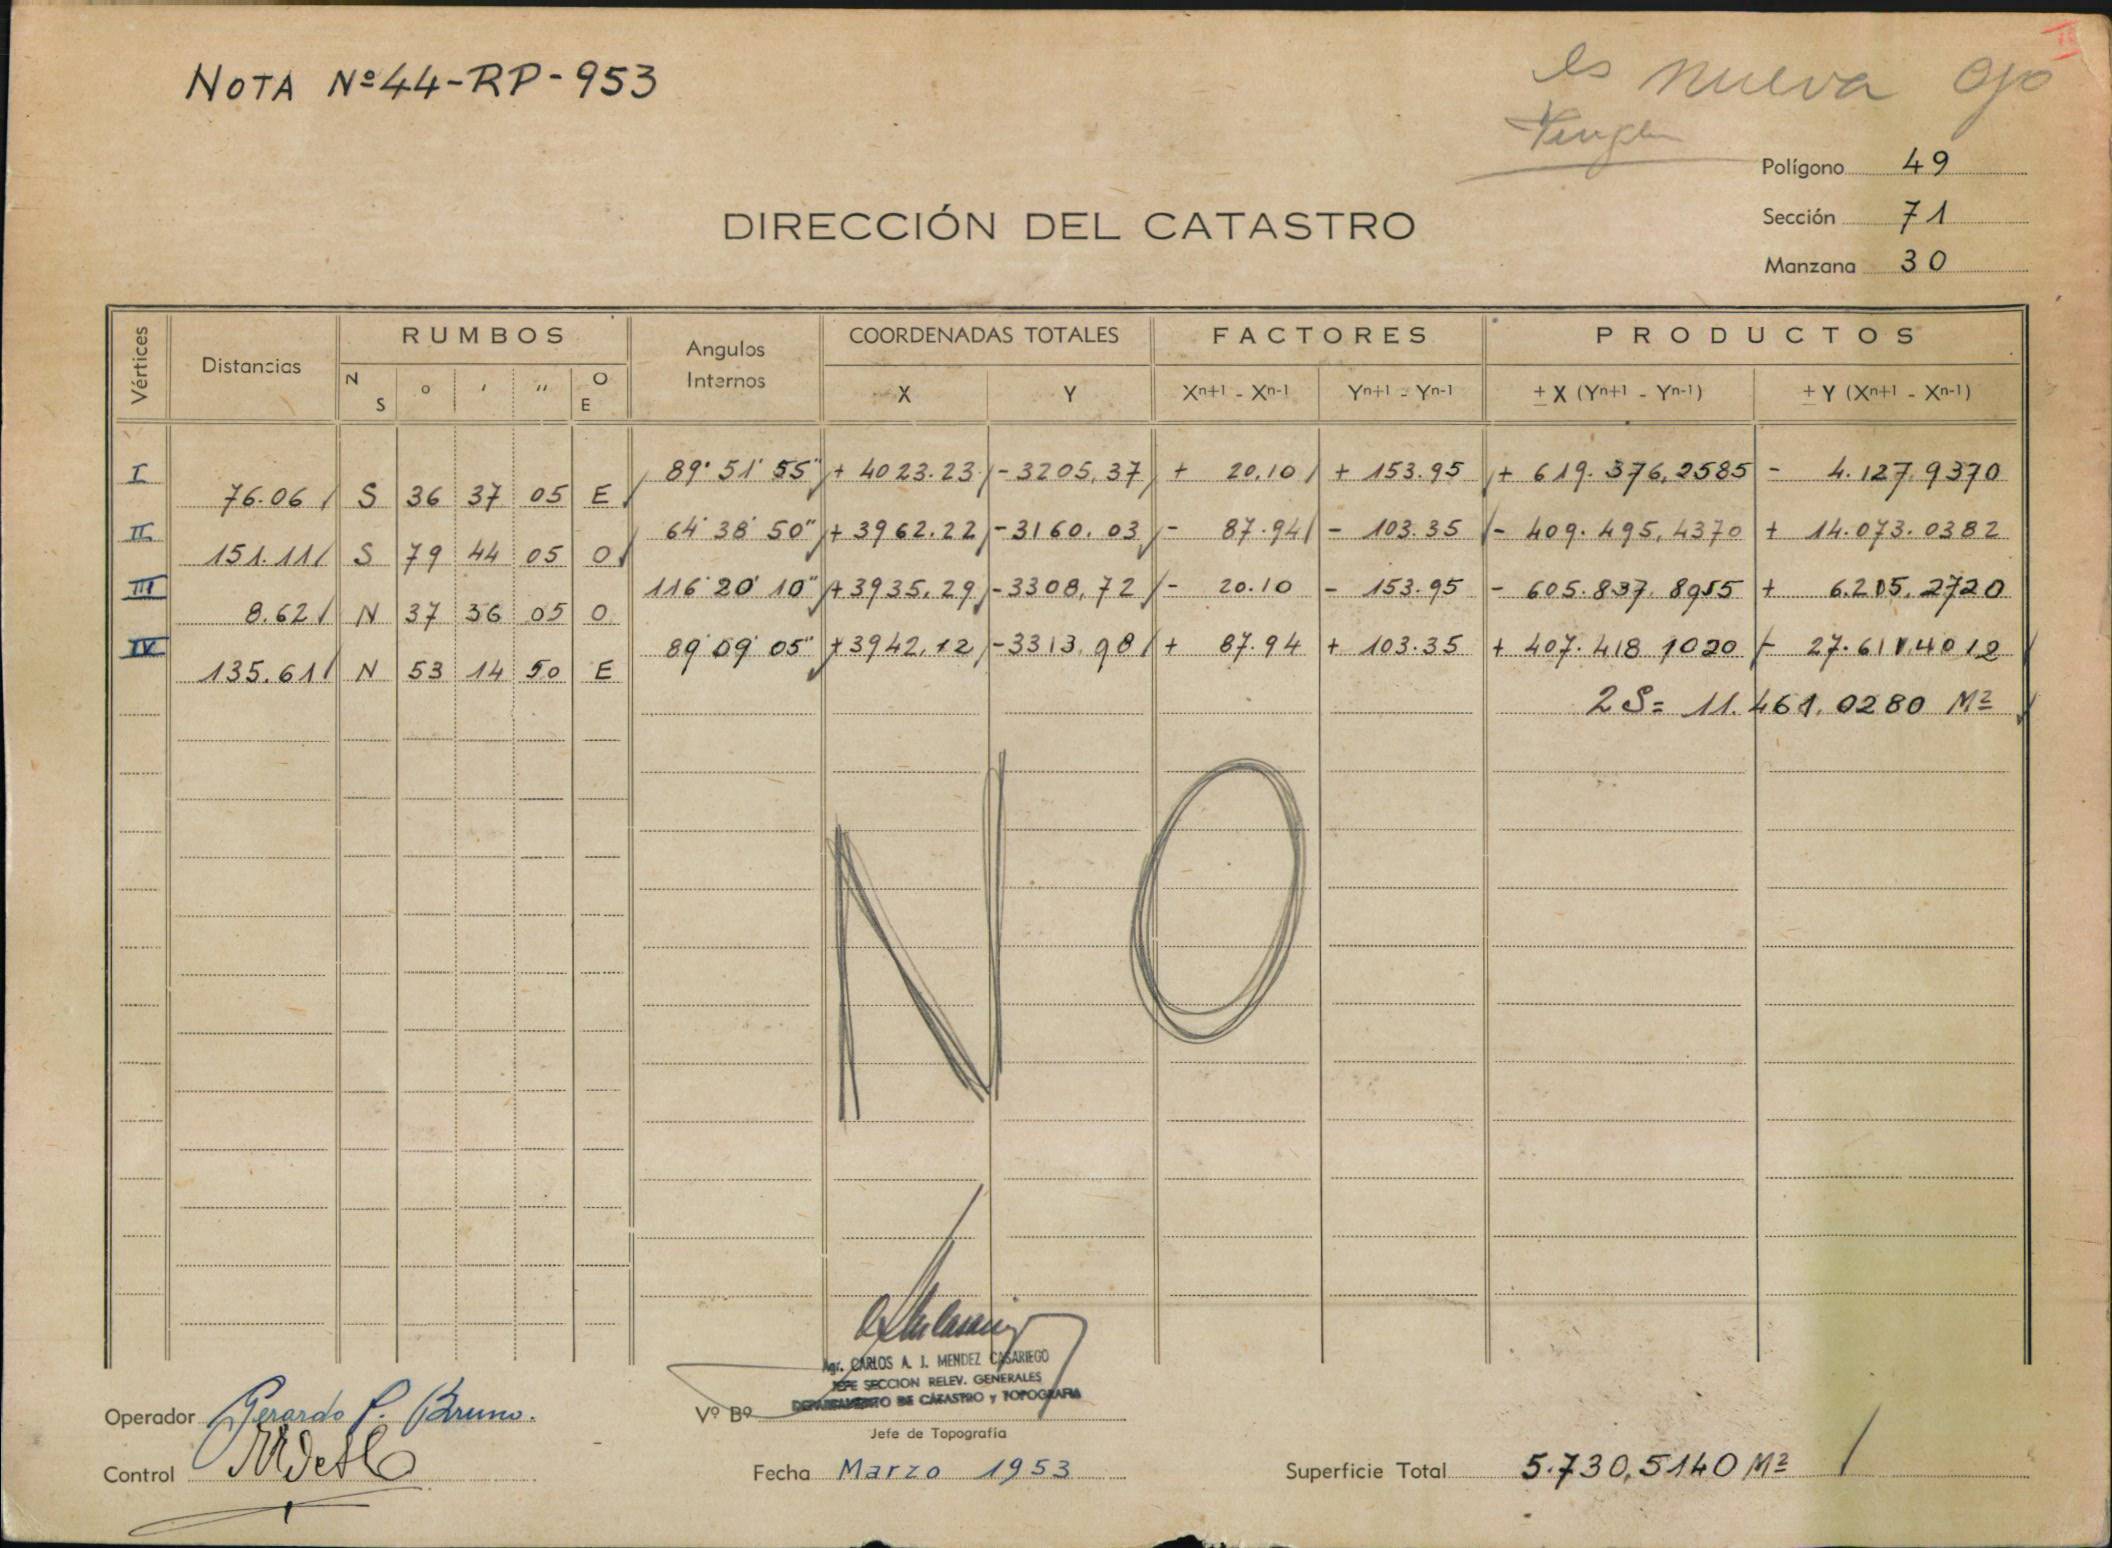 NOTA Nº 44-RP-953
es nueva ojo
II
Polígono 49
Sección 71
Manzana 30
DIRECCIÓN DEL CATASTRO
Vértices Distancias RUMBOS Angulos Internos COORDENADAS TOTALES FACTORES PRODUCTOS
N S ° ' " O E X Y Xn+1 - Xn-1 Yn+1 - Yn-1 ± X (Yn+1 - Yn-1) ± Y (Xn+1 - Xn-1)
I 89° 51' 55" + 4023.23 - 3205,37 + 20,10 + 153.95 + 619.376,2585 - 4.127,9370
76.06 S 36 37 05 E
II 64° 38' 50" + 3962.22 - 3160.03 - 87.94 - 103.35 - 409.495,4370 + 14.073.0382
151.11 S 79 44 05 O
III 116° 20' 10" + 3935,29 - 3308,72 - 20.10 - 153.95 - 605.837,8955 + 6.205,2720
8.62 N 37 36 05 O
IV 89° 09' 05" + 3942,12 - 3313,98 + 87.94 + 103.35 + 407.418 1020 - 27.611,4012
135.61 N 53 14 50 E
2S= 11.461,0280 M²
NO
Agr. CARLOS A. J. MENDEZ CASARIEGO
JEFE SECCION RELEV. GENERALES
DEPARTAMENTO DE CATASTRO y TOPOGRAFIA
Operador Gerardo P. Bruno.
Vº Bº
Jefe de Topografía
Control
Fecha Marzo 1953
Superficie Total 5.730,5140 M²